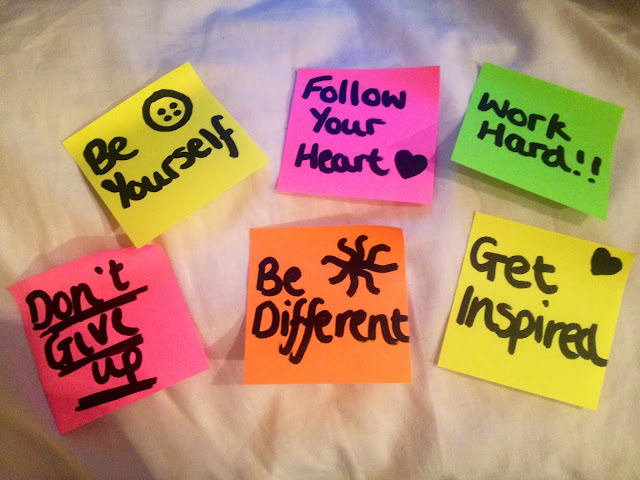 Be
Yourself
Follow
Your
Heart
Work
Hard!!
Don't
Give
up
Be
Different
Get
Inspired